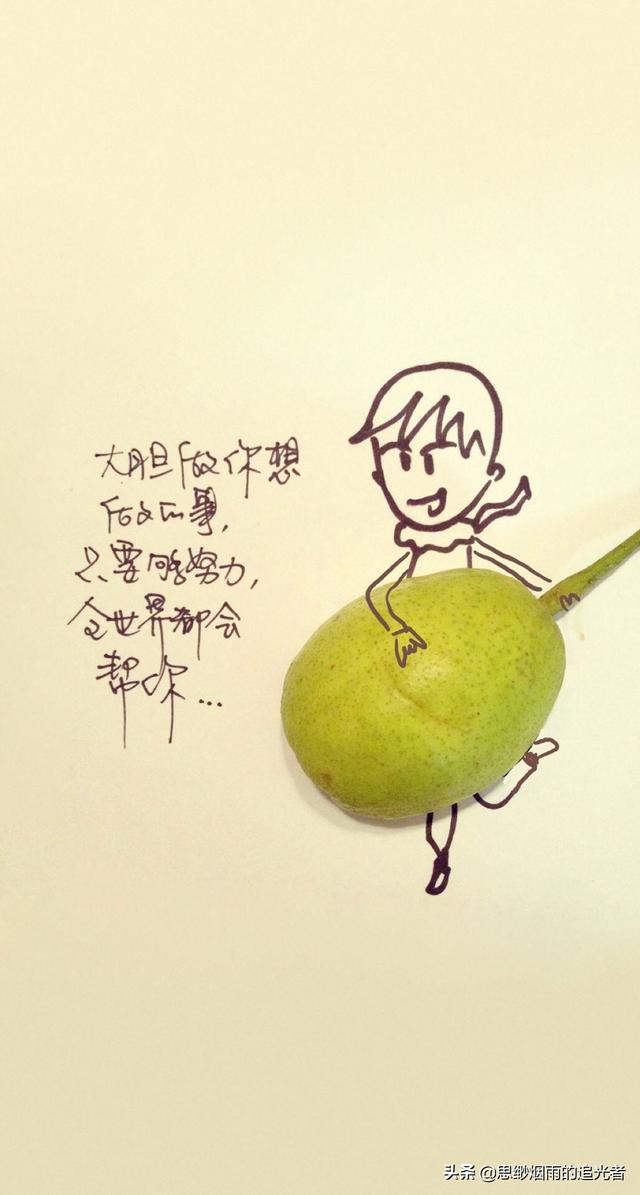 大胆做你想
做的事,
只要够努力,
全世界都会
帮你...
头条 @思缈烟雨的追光者